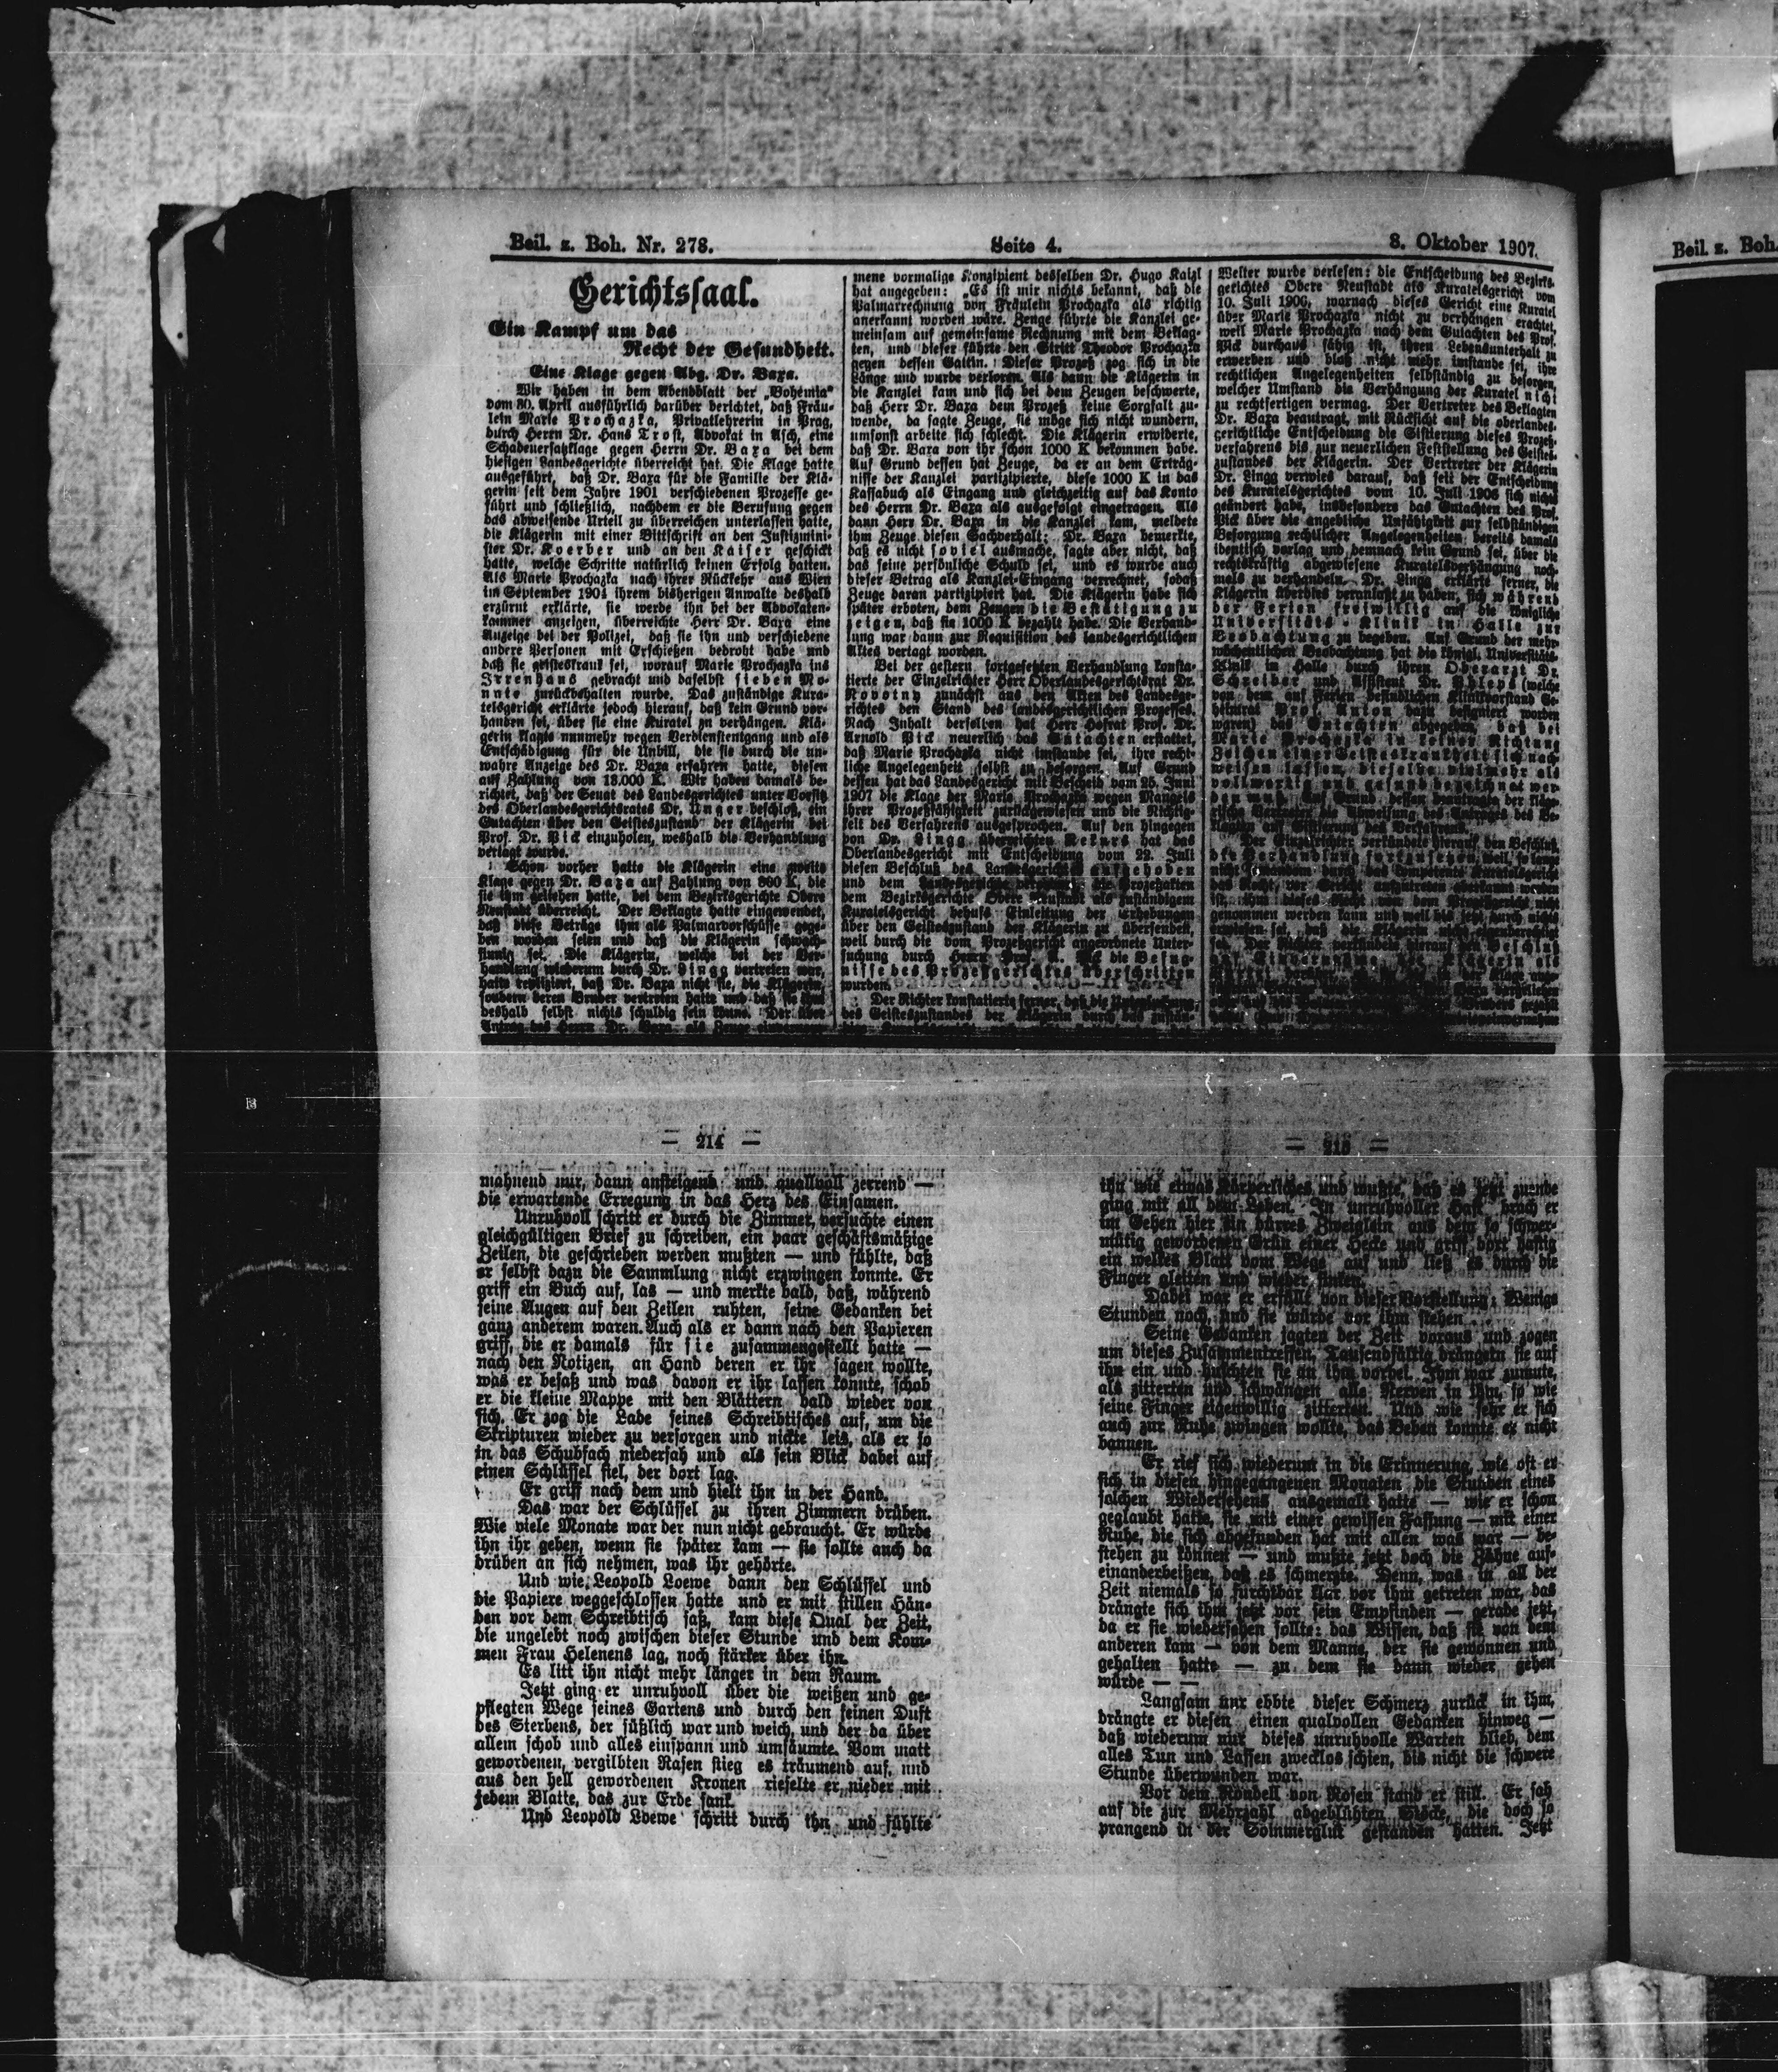 Beil. z. Boh. Nr. 278.
Seite 4.
8. Oktober 1907.
Gerichtssaal.
Ein Kampf um das
Recht der Gesundheit.
Eine Klage gegen Abg. Dr. Baxa.
Wir haben in dem Abendblatt der „Bohemia“
vom 30. April ausführlich darüber berichtet, daß Fräu-
lein Marie Prochazka, Privatlehrerin in Prag,
durch Herrn Dr. Hans Trost, Advokat in Asch, eine
Schadenersatzklage gegen Herrn Dr. Baxa bei dem
hiesigen Landesgerichte überreicht hat. Die Klage hatte
ausgeführt, daß Dr. Baxa für die Familie der Klä-
gerin seit dem Jahre 1901 verschiedenen Prozesse ge-
führt und schließlich, nachdem er die Berufung gegen
das abweisende Urteil zu überreichen unterlassen hatte,
die Klägerin mit einer Bittschrift an den Justizmini-
ster Dr. Koerber und an den Kaiser geschickt
hatte, welche Schritte natürlich keinen Erfolg hatten.
Als Marie Prochazka nach ihrer Rückkehr aus Wien
im September 1904 ihrem bisherigen Anwalte deshalb
erzürnt erklärte, sie werde ihn bei der Advokaten-
kammer anzeigen, überreichte Herr Dr. Baxa eine
Anzeige bei der Polizei, daß sie ihn und verschiedene
andere Personen mit Erschießen bedroht habe und
daß sie geisteskrank sei, worauf Marie Prochazka ins
Irrenhaus gebracht und daselbst sieben Mo-
nate zurückbehalten wurde. Das zuständige Kura-
telsgericht erklärte jedoch hierauf, daß kein Grund vor-
handen sei, über sie eine Kuratel zu verhängen. Klä-
gerin klagte nunmehr wegen Verdienstentgang und als
Entschädigung für die Unbill, die sie durch die un-
wahre Anzeige des Dr. Baxa erfahren hatte, diesen
auf Zahlung von 18.000 K. Wir haben damals be-
richtet, daß der Senat des Landesgerichtes unter Vorsitz
des Oberlandesgerichtsrates Dr. Unger beschloß, ein
Gutachten über den Geisteszustand der Klägerin bei
Prof. Dr. Pick einzuholen, weshalb die Verhandlung
vertagt wurde.
Schon vorher hatte die Klägerin eine zweite
Klage gegen Dr. Baxa auf Zahlung von 800 K, die
sie ihm geliehen hatte, bei dem Bezirksgerichte Obere
Neustadt überreicht. Der Beklagte hatte eingewendet,
daß diese Beträge ihm als Palmarvorschüsse gege-
ben worden seien und daß die Klägerin schwach-
sinnig sei. Die Klägerin, welche bei der Ver-
handlung wiederum durch Dr. Lingg vertreten war,
hatte repliziert, daß Dr. Baxa nicht sie, die Klägerin,
sondern deren Bruder vertreten hatte und daß sie ihm
deshalb selbst nichts schuldig sein könne. Der über
Antrag des Herrn Dr. Baxa als Zeuge
mene vormalige Konzipient desselben Dr. Hugo Kaizl
hat angegeben: „Es ist mir nichts bekannt, daß die
Palmarrechnung von Fräulein Prochazka als richtig
anerkannt worden wäre. Zeuge führte die Kanzlei ge-
meinsam auf gemeinsame Rechnung mit dem Beklag-
ten, und dieser führte den Streit Theodor Prochazka
gegen dessen Gattin. Dieser Prozeß zog sich in die
Länge und wurde verloren. Als dann die Klägerin in
die Kanzlei kam und sich bei dem Zeugen beschwerte,
daß Herr Dr. Baxa dem Prozeß keine Sorgfalt zu-
wende, da sagte Zeuge, sie möge sich nicht wundern,
umsonst arbeite sich schlecht. Die Klägerin erwiderte,
daß Dr. Baxa von ihr schon 1000 K bekommen habe.
Auf Grund dessen hat Zeuge, da er an dem Erträg-
nisse der Kanzlei partizipierte, diese 1000 K in das
Kassabuch als Eingang und gleichzeitig auf das Konto
des Herrn Dr. Baxa als ausgefolgt eingetragen. Als
dann Herr Dr. Baxa in die Kanzlei kam, meldete
ihm Zeuge diesen Sachverhalt; Dr. Baxa bemerkte,
daß es nicht soviel ausmache, sagte aber nicht, daß
das seine persönliche Schuld sei, und es wurde auch
dieser Betrag als Kanzlei-Eingang verrechnet, sodaß
Zeuge daran partizipiert hat. Die Klägerin habe sich
später erboten, dem Zeugen die Bestätigung zu
zeigen, daß sie 1000 K bezahlt habe. Die Verhand-
lung war dann zur Requisition des landesgerichtlichen
Aktes vertagt worden.
Bei der gestern fortgesetzten Verhandlung konsta-
tierte der Einzelrichter Herr Oberlandesgerichtsrat Dr.
Novotny zunächst aus den Akten des Landesge-
richtes den Stand des landesgerichtlichen Prozesses.
Nach Inhalt derselben hat Herr Hofrat Prof. Dr.
Arnold Pick neuerlich das Gutachten erstattet,
daß Marie Prochazka nicht imstande sei, ihre recht
liche Angelegenheit selbst zu besorgen. Auf Grund
dessen hat das Landesgericht mit Bescheid vom 25. Juni
1907 die Klage der Marie Prochazka wegen Mangels
ihrer Prozeßfähigkeit zurückgewiesen und die Nichtig-
keit des Verfahrens ausgesprochen. Auf den hingegen
von Dr. Lingg überreichten Rekurs hat das
Oberlandesgericht mit Entscheidung vom 22. Juli
diesen Beschluß des Landesgerichtes aufgehoben
und dem Landesgerichte die Prozeßakten
dem Bezirksgerichte Obere Neustadt als zuständigem
Kuratelsgericht behufs Einleitung der Erhebungen
über den Geisteszustand der Klägerin zu übersenden,
weil durch die vom Prozeßgericht angeordnete Unter-
suchung durch Herrn Prof. A. Pick die Befug-
nisse des Prozeßgerichtes überschritten
wurden.
Der Richter konstatierte ferner, daß die Untersuchung
des Geisteszustandes der Klägerin durch das zustän-
Weiter wurde verlesen: die Entscheidung des Bezirks-
gerichtes Obere Neustadt als Kuratelsgericht vom
10. Juli 1906, warnach dieses Gericht eine Kuratel
über Marie Prochazka nicht zu verhängen erachtet,
weil Marie Prochazka nach dem Gutachten des Prof.
Pick durchaus fähig ist, ihren Lebensunterhalt zu
erwerben und bloß nicht mehr imstande sei, ihre
rechtlichen Angelegenheiten selbständig zu besorgen,
welcher Umstand die Verhängung der Kuratel nicht
zu rechtfertigen vermag. Der Vertreter des Beklagten
Dr. Baxa beantragt, mit Rücksicht auf die oberlandes-
gerichtliche Entscheidung die Sistierung dieses Prozeß-
verfahrens bis zur neuerlichen Feststellung des Geistes-
zustandes der Klägerin. Der Vertreter der Klägerin
Dr. Lingg verwies darauf, daß seit der Entscheidung
des Kuratelsgerichtes vom 10. Juli 1906 sich nichts
geändert habe, insbesonders das Gutachten des Prof.
Pick über die angebliche Unfähigkeit zur selbständigen
Besorgung rechtlicher Angelegenheiten bereits damals
identisch vorlag und demnach kein Grund sei, über die
rechtskräftig abgewiesene Kuratelsverhängung noch-
mals zu verhandeln. Dr. Lingg erklärte ferner, die
Klägerin überdies veranlaßt zu haben, sich während
der Ferien freiwillig auf die königliche
Universitäts-Klinik in Halle zur
Beobachtung zu begeben. Auf Grund der mehr-
wöchentlichen Beobachtung hat die königl. Universitäts-
Klinik in Halle durch ihren Oberarzt Dr.
Schreiber und Assistent Dr. (welche
von dem auf Ferien befindlichen Klinikvorstand Ge-
heimrat Prof. Anton dazu designiert worden
waren) das Gutachten abgegeben, daß bei
Marie Prochazka in keiner Richtung
Zeichen einer Geisteskrankheit sich nach-
weisen lassen, dieselbe vielmehr als
vollwertig und gesund bezeichnet wer-
den muß. Auf Grund dessen beantragte der kläge-
rische Vertreter die Abweisung des Antrages des Be-
klagten auf Sistierung des Verfahrens.
Der Einzelrichter verkündete hierauf den Beschluß,
die Verhandlung fortzusetzen, weil, so lange
nicht jemandem durch das kompetente Kuratelsgericht
das Recht, vor Gericht aufzutreten aberkannt worden
ist, ihm dieses Recht von dem Prozeßgericht nicht
genommen werden kann und weil bis jetzt durch nichts
erwiesen sei, daß die Klägerin nicht eigenberechtigt
sei. Der Richter verkündete hierauf den Beschluß
auf Einvernahme der Klägerin als
— 214 —
mahnend nur, dann ansteigend und qualvoll zerrend —
die erwartende Erregung in das Herz des Einsamen.
Unruhvoll schritt er durch die Zimmer, versuchte einen
gleichgültigen Brief zu schreiben, ein paar geschäftsmäßige
Zeilen, die geschrieben werden mußten — und fühlte, daß
er selbst dazu die Sammlung nicht erzwingen konnte. Er
griff ein Buch auf, las — und merkte bald, daß, während
seine Augen auf den Zeilen ruhten, seine Gedanken bei
ganz anderem waren. Auch als er dann nach den Papieren
griff, die er damals für sie zusammengestellt hatte —
nach den Notizen, an Hand deren er ihr sagen wollte,
was er besaß und was davon er ihr lassen konnte, schob
er die kleine Mappe mit den Blättern bald wieder von
sich. Er zog die Lade seines Schreibtisches auf, um die
Skripturen wieder zu versorgen und nickte leis, als er so
in das Schubfach niedersah und als sein Blick dabei auf
einen Schlüssel fiel, der dort lag.
Er griff nach dem und hielt ihn in der Hand.
Das war der Schlüssel zu ihren Zimmern drüben.
Wie viele Monate war der nun nicht gebraucht. Er würde
ihn ihr geben, wenn sie später kam — sie sollte auch da
drüben an sich nehmen, was ihr gehörte.
Und wie Leopold Loewe dann den Schlüssel und
die Papiere weggeschlossen hatte und er mit stillen Hän-
den vor dem Schreibtisch saß, kam diese Qual der Zeit,
die ungelebt noch zwischen dieser Stunde und dem Kom-
men Frau Helenens lag, noch stärker über ihn.
Es litt ihn nicht mehr länger in dem Raum.
Jetzt ging er unruhvoll über die weißen und ge-
pflegten Wege seines Gartens und durch den feinen Duft
des Sterbens, der süßlich war und weich, und der da über
allem schob und alles einspann und umsäumte. Vom matt
gewordenen, vergilbten Rasen stieg es träumend auf, und
aus den hell gewordenen Kronen rieselte er nieder mit
jedem Blatte, das zur Erde sank.
Und Leopold Loewe schritt durch ihn und fühlte
— 215 —
ihn wie etwas Körperliches und wußte, daß es jetzt zuende
ging mit all dem Leben. In unruhvoller Hast brach er
im Gehen hier ein dürres Zweiglein aus dem so schwer-
mütig gewordenen Grün einer Hecke und griff dort hastig
ein welkes Blatt vom Wege auf und ließ es durch die
Finger gleiten und wieder sinken.
Dabei war er erfüllt von dieser Vorstellung: Wenige
Stunden noch, und sie würde vor ihm stehen...
Seine Gedanken jagten der Zeit voraus und zogen
um dieses Zusammentreffen. Tausendfältig drängten sie auf
ihn ein und huschten sie an ihm vorbei. Ihm war zumute,
als zitterten und schwängen alle Nerven in ihm, so wie
seine Finger eigenwillig zitterten. Und wie sehr er sich
auch zur Ruhe zwingen wollte, das Beben konnte er nicht
bannen.
Er rief sich wiederum in die Erinnerung, wie oft er
sich in diesen hingegangenen Monaten die Stunden eines
solchen Wiedersehens ausgemalt hatte — wie er schon
geglaubt hatte, sie mit einer gewissen Fassung — mit einer
Ruhe, die sich abgefunden hat mit allen was war — be-
stehen zu können — und mußte jetzt doch die Zähne auf-
einanderbeißen, daß es schmerzte. Denn, was in all der
Zeit niemals so furchtbar klar vor ihm getreten war, das
drängte sich ihm jetzt vor sein Empfinden — gerade jetzt,
da er sie wiedersehen sollte: das Wissen, daß sie von dem
anderen kam — von dem Manne, der sie gewonnen und
gehalten hatte — zu dem sie dann wieder gehen
würde — —
Langsam nur ebbte dieser Schmerz zurück in ihm,
drängte er diesen einen qualvollen Gedanken hinweg —
daß wiederum nur dieses unruhvolle Warten blieb, dem
alles Tun und Lassen zwecklos schien, bis nicht die schwere
Stunde überwunden war.
Vor dem Rondell von Rosen stand er still. Er sah
auf die zur Mehrzahl abgeblühten Stöcke, die doch so
prangend in der Sommerglut gestanden hatten. Jetzt
Beil. z. Boh.